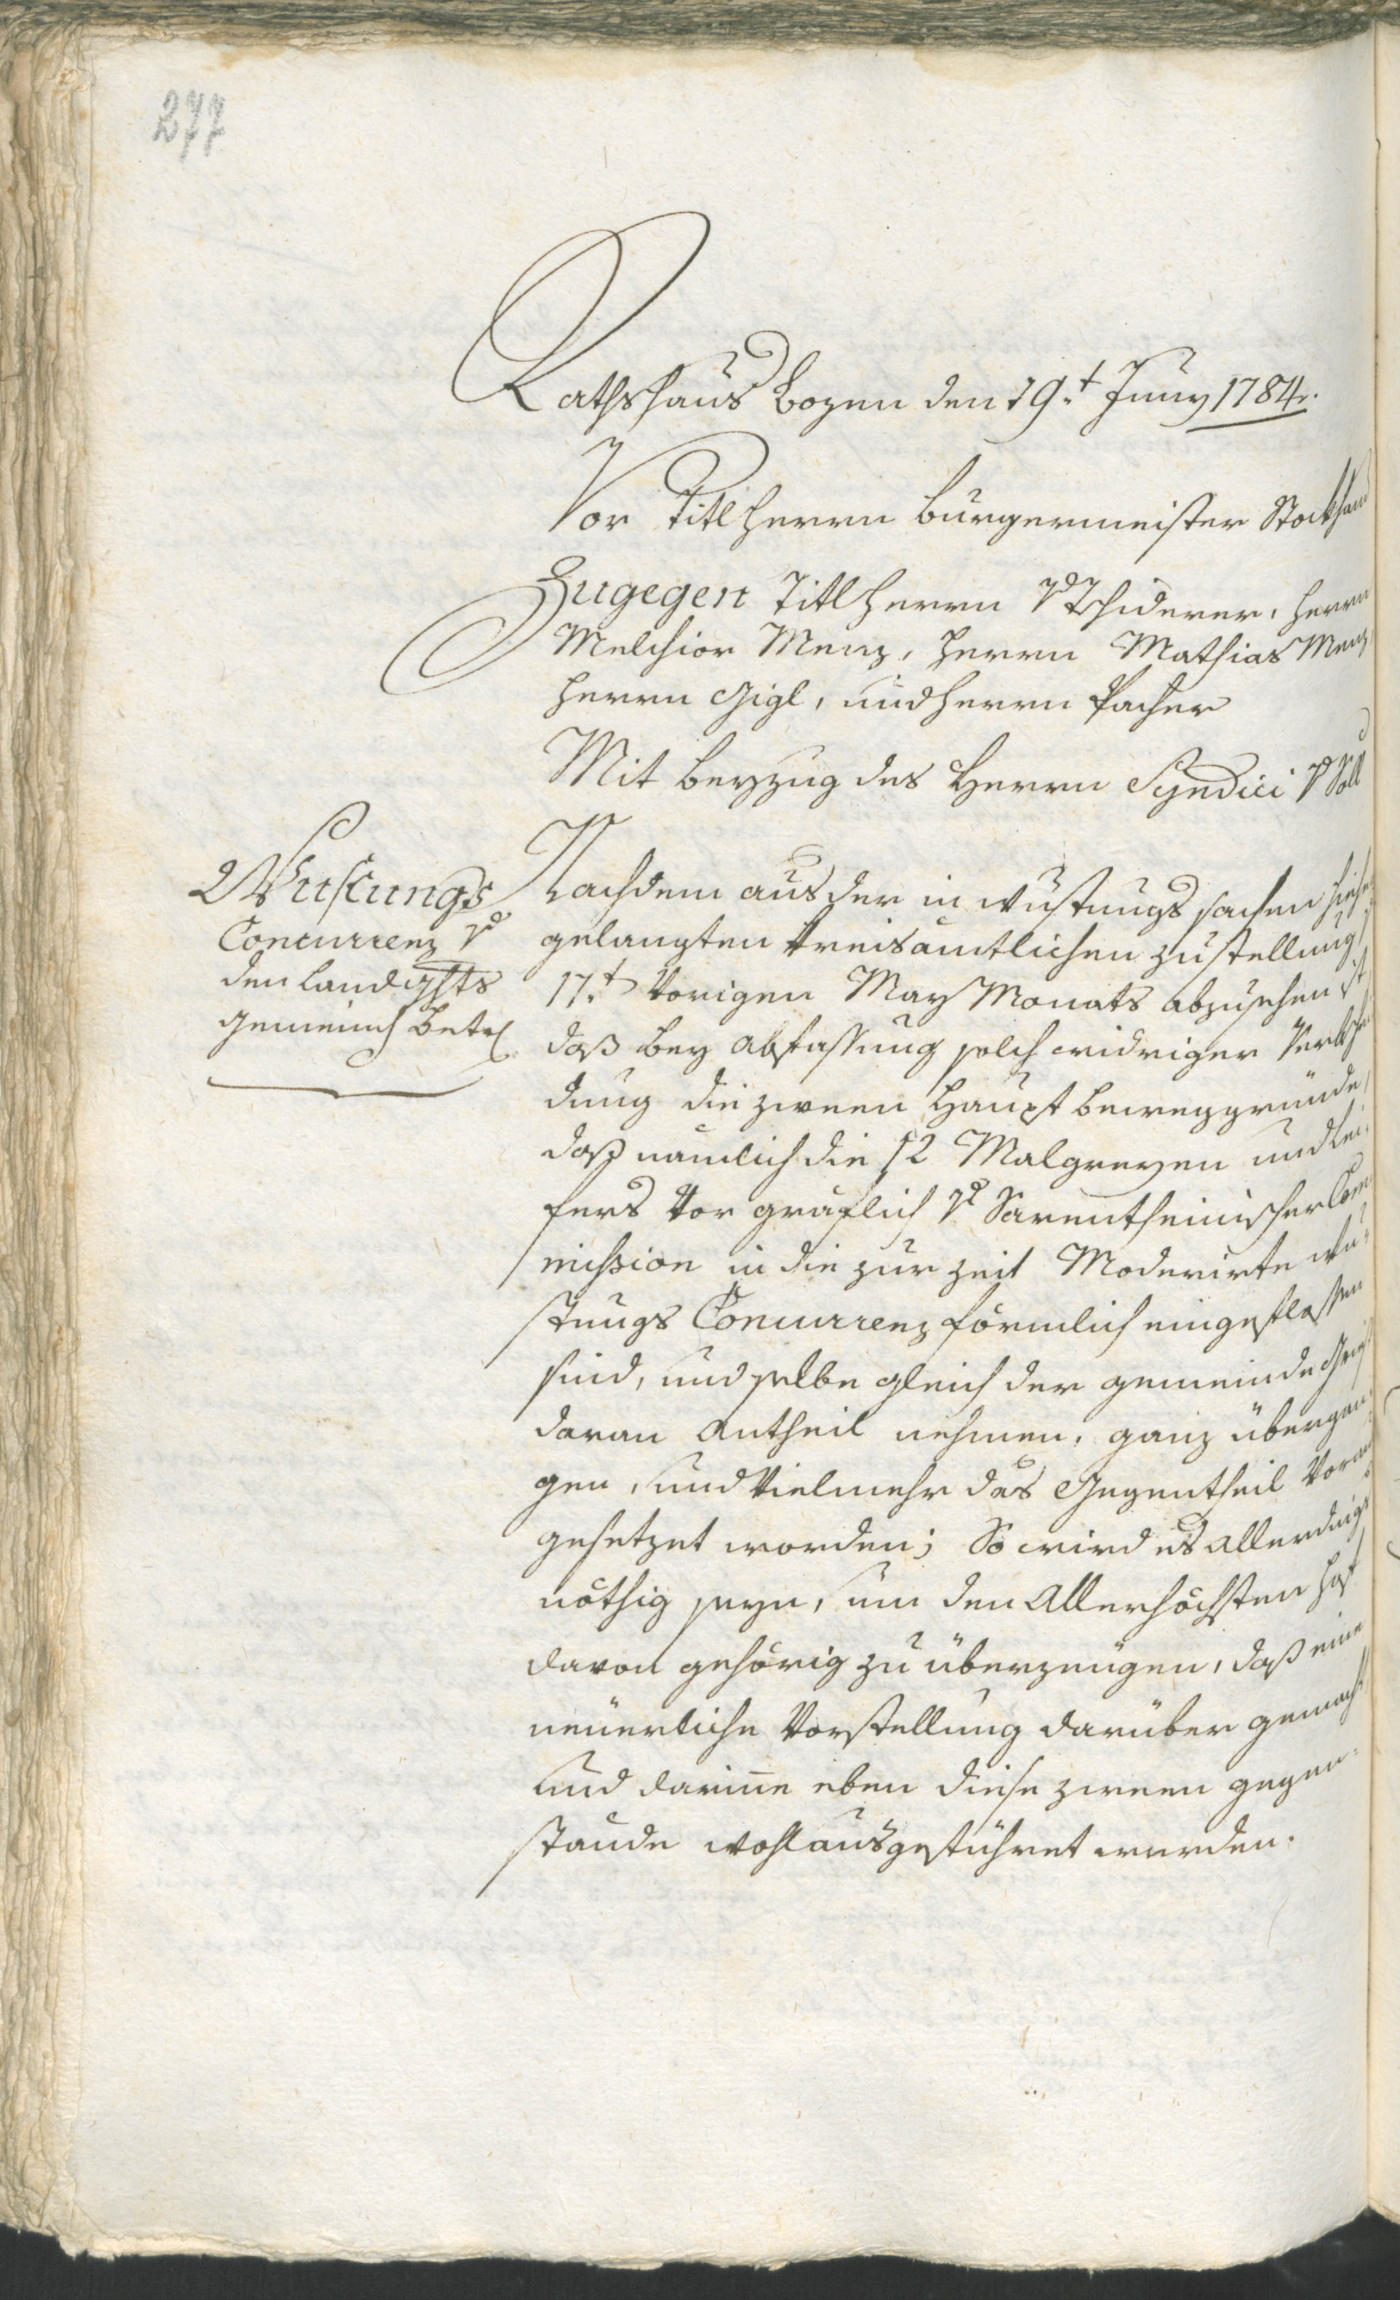 277
Rathshaus Bozen den 19.t Juny 1784.
Vor Titl Herrn Burgermeister Stockhau
Zugegen Titl Herrn v Tschiderer, Herrn
Melchior Menz, Herrn Mathias Menz
Herrn Gigl, und Herrn Pacher
Mit beyzug des Herrn Syndici v Söll
Wustungs
Concurrenz v
den Landgshts
gemeinsch betr
Nachdem aus der in wustungs sachen hieher
gelangten Kreisämtlichen zustellung
17.t Vorigen May Monats abzusehen ist
daß bey abfassung solch widriger
dung die zween Haupt beweggründe,
daß nämlich die 12 Malgreyen und Lei¬
fers vor gräflich v Sarentheinischer Com
mission in die zur zeit Moderirte wu¬
stungs Concurrenz förmlich eingeflossen
sind, und selbe gleich der gemeinde Gries
daran Antheil nehmen, ganz übergan
gen, und Vielmehr das Gegentheil Voraus
gesetzet worden; So wird es allerdings
nöthig seyn, um den Allerhöchsten Hof
davon gehörig zu überzeugen, daß eine
neüerliche Vorstellung darüber gemacht
und darine eben diese zween gegen¬
stände wohl ausgeführet werden.